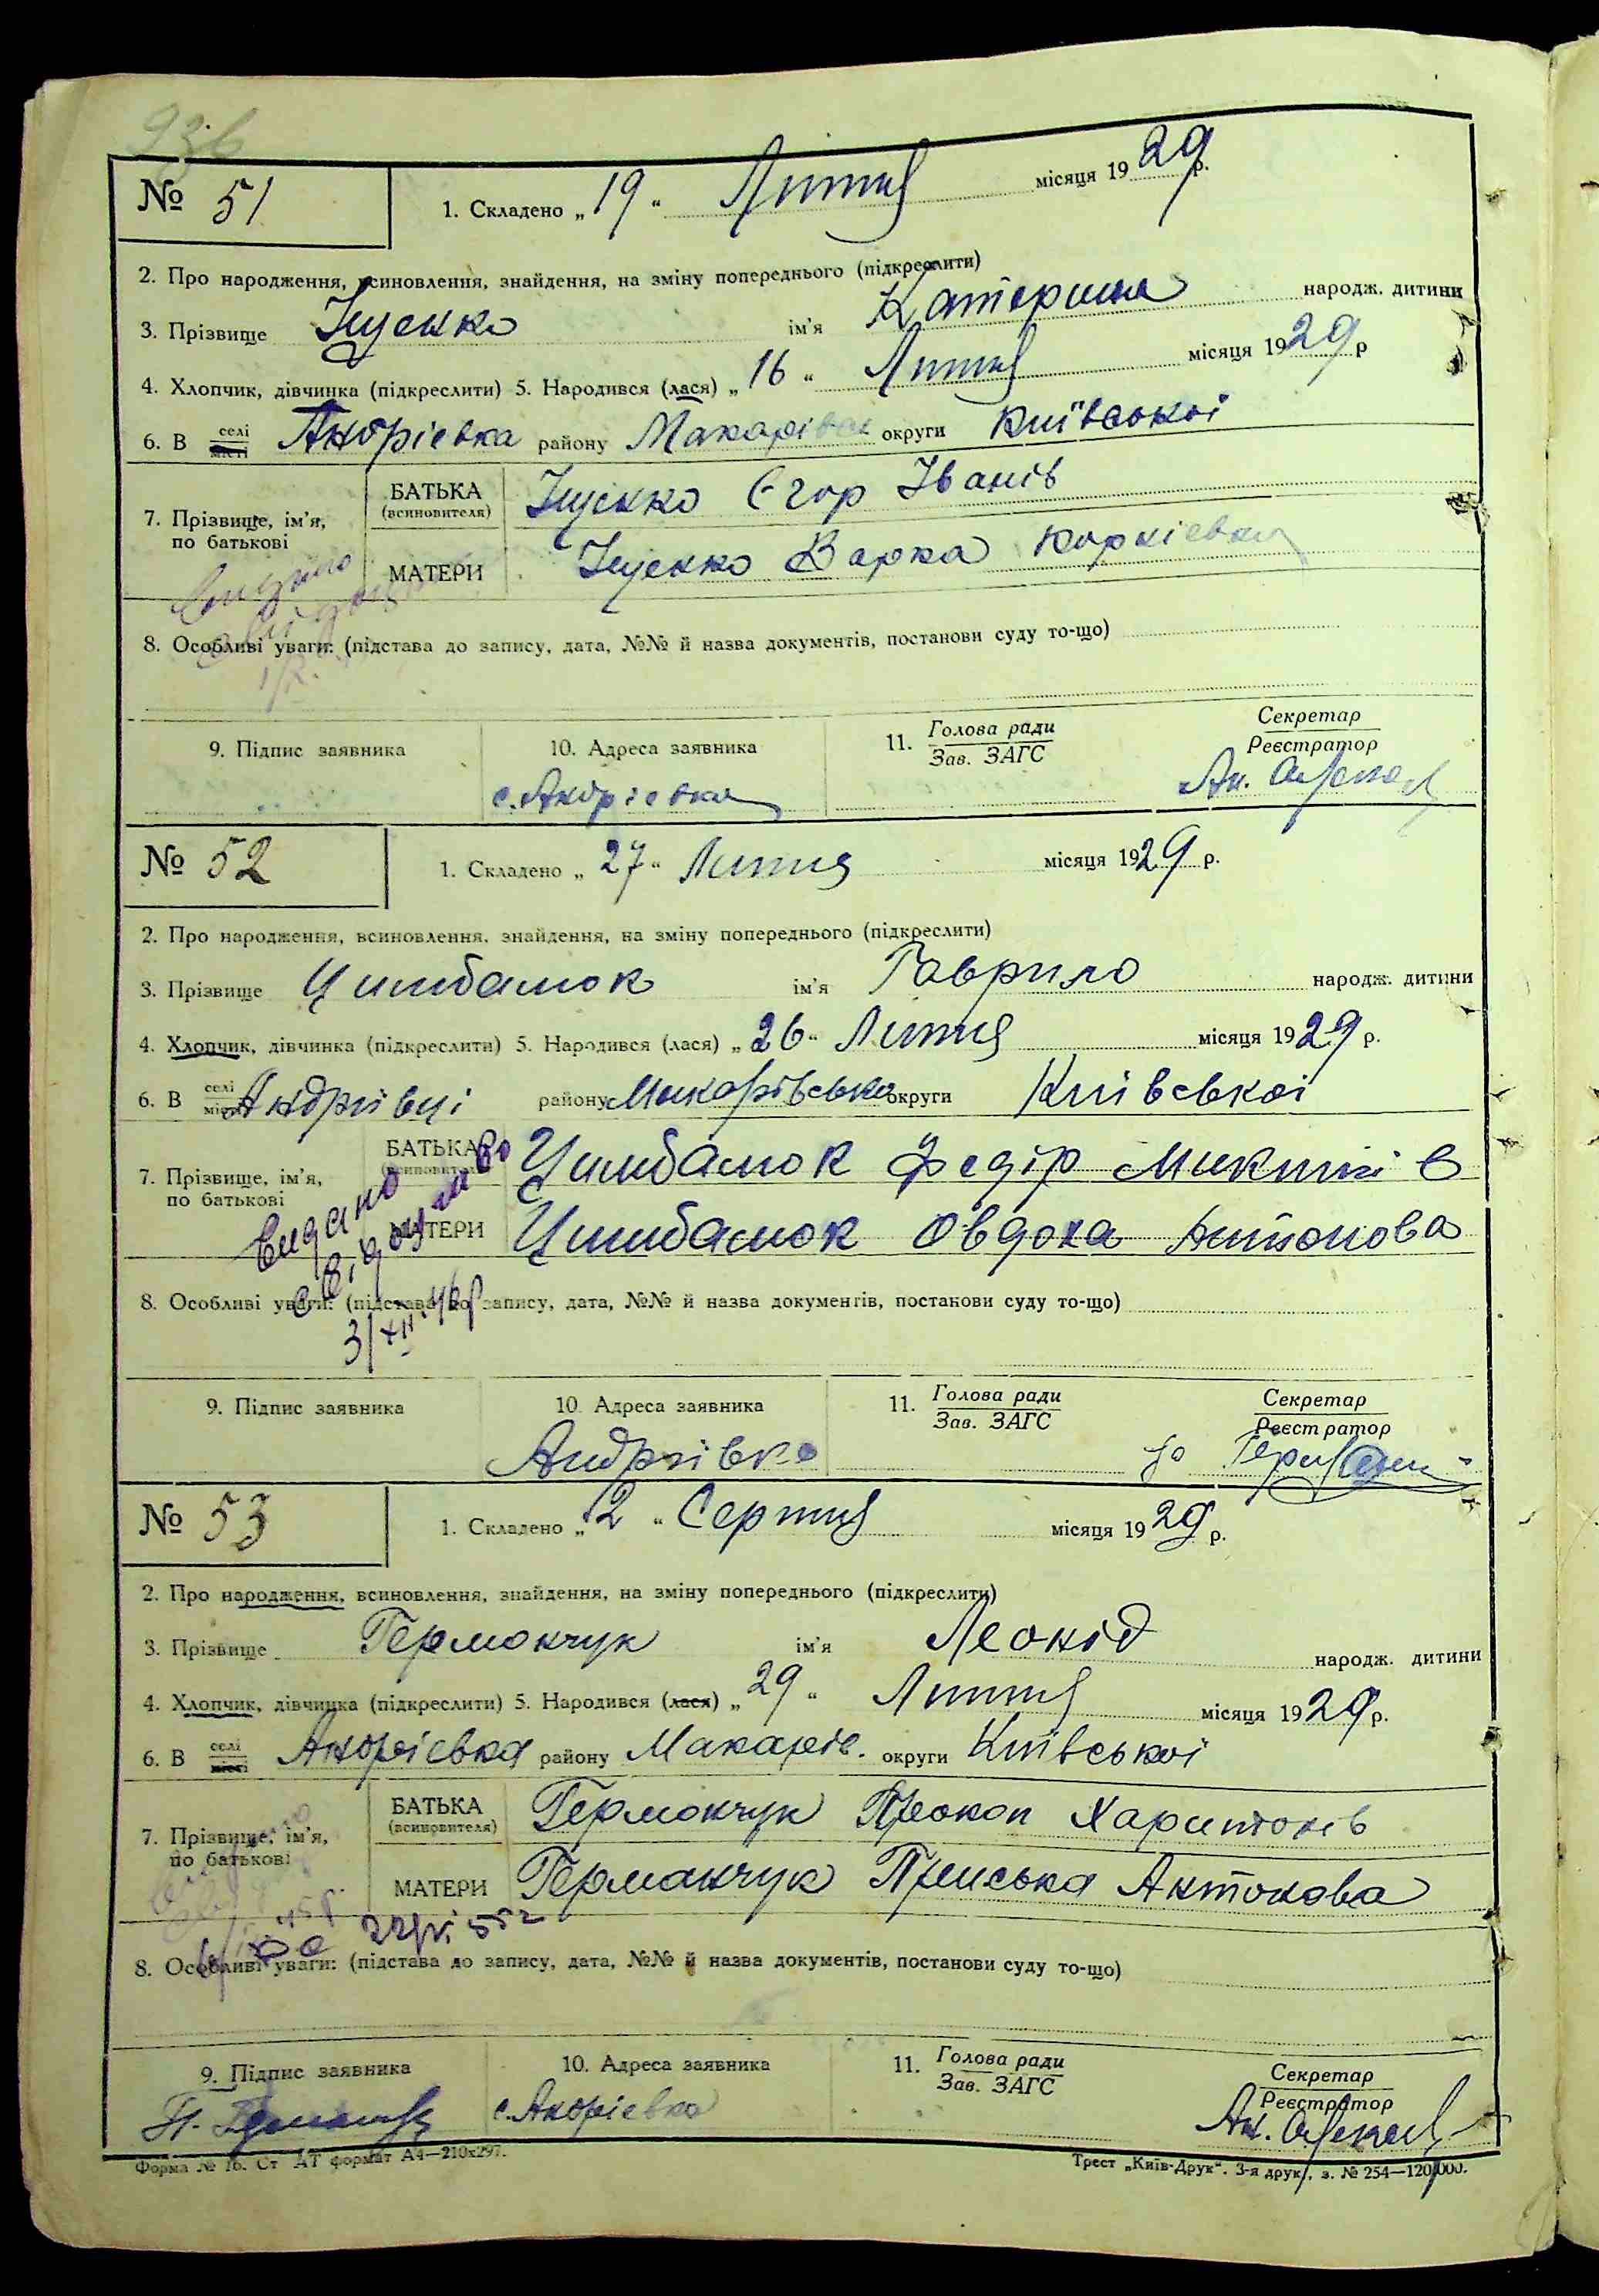 936
№ 51
1. Складено „19“ Липня місяця 1929 р.
2. Про народження, всиновлення, знайдення, на зміну попереднього (підкреслити)
3. Прізвище Іщенко ім'я Катерина народж. дитини
4. Хлопчик, дівчинка (підкреслити) 5. Народився (лася) „16“ Липня місяця 1929 р
6. В селі місті Андрієвка району Макарівськ округи Київської
7. Прізвище, ім'я, по батькові
БАТЬКА (всиновителя) Іщенко Єгор Іванів
МАТЕРИ Іщенко Варка
8. Особливі уваги: (підстава до запису, дата, №№ й назва документів, постанови суду то-що)
9. Підпис заявника 10. Адреса заявника 11. Голова ради Зав. ЗАГС Секретар Реєстратор
с. Андрієвка
№ 52
1. Складено „27“ Липня місяця 1929 р.
2. Про народження, всиновлення, знайдення, на зміну попереднього (підкреслити)
3. Прізвище Цимбалюк ім'я Гаврило народж. дитини
4. Хлопчик, дівчинка (підкреслити) 5. Народився (лася) „26“ Липня місяця 1929 р.
6. В селі місті Андріївці району Макарівська округи Київської
7. Прізвище, ім'я, по батькові
БАТЬКА (всиновителя) Цимбалюк Федір Микитів
МАТЕРИ Цимбалюк Овдоха Антонова
Видано свідоцтво
8. Особливі уваги: (підстава до запису, дата, №№ й назва документів, постанови суду то-що)
9. Підпис заявника 10. Адреса заявника 11. Голова ради Зав. ЗАГС Секретар Реєстратор
Андріївка
№ 53
1. Складено „2“ Серпня місяця 1929 р.
2. Про народження, всиновлення, знайдення, на зміну попереднього (підкреслити)
3. Прізвище Гермончук ім'я Леонід народж. дитини
4. Хлопчик, дівчинка (підкреслити) 5. Народився (лася) „29“ Липня місяця 1929 р.
6. В селі місті Андрієвка району Макарів. округи Київської
7. Прізвище, ім'я, по батькові
БАТЬКА (всиновителя) Гермончук Прокоп Харитонів
МАТЕРИ Германчук Приська Антонова
8. Особливі уваги: (підстава до запису, дата, №№ й назва документів, постанови суду то-що)
9. Підпис заявника 10. Адреса заявника 11. Голова ради Зав. ЗАГС Секретар Реєстратор
с. Андрієвка
Форма № 16. Ст АТ формат А4—210х297. Трест „Київ-Друк“. 3-я друк., з. № 254—120.000.